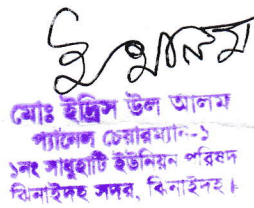 মোঃ ইদ্রিস উল আলম
প্যানেল চেয়ারম্যান-১
১নং সাধুহাটি ইউনিয়ন পরিষদ
ঝিনাইদহ সদর, ঝিনাইদহ।